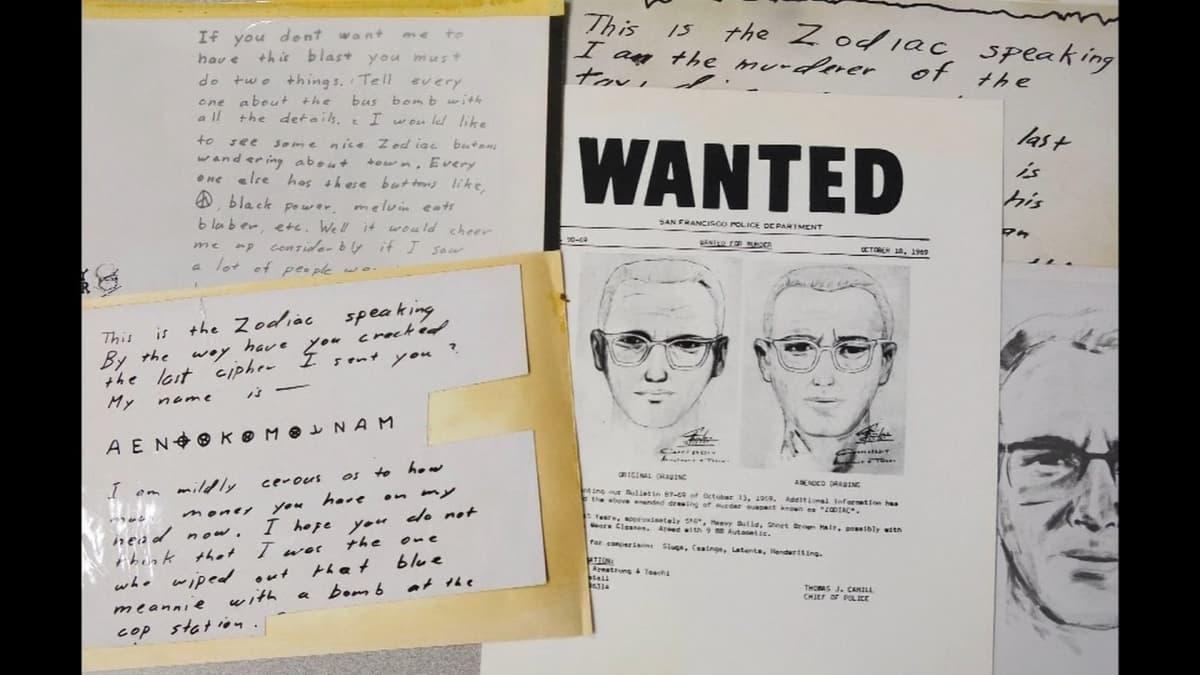 If you dont want me to
have this blast you must
do two things. Tell every
one about the bus bomb with
all the details. I would like
to see some nice Zodiac butons
wandering about town. Every
one else has these buttons like,
☮, black power, melvin eats
blaber, etc. Well it would cheer
me up considerbly if I saw
a lot of people
This is the Zodiac speaking
By the way have you cracked
the last cipher I sent you ?
My name is —
A E N ⌖ ⊗ K ⊗ M ⊗ ⅃ N A M
I am mildly cerous as to how
much money you have on my
head now. I hope you do not
think that I was the one
who wiped out that blue
meannie with a bomb at the
cop station.
This is the Zodiac speaking
I am the murderer of the
last
is
his
an
WANTED
SAN FRANCISCO POLICE DEPARTMENT
90-69 WANTED FOR MURDER OCTOBER 18, 1969
ORIGINAL DRAWING AMENDED DRAWING
our Bulletin 87-69 of October 13, 1969. Additional information has
the above amended drawing of murder suspect known as "ZODIAC".
Years, approximately 5'8", Heavy Build, Short Brown Hair, possibly with
Wears Glasses. Armed with 9 MM Automatic.
for comparison: Slugs, Casings, Latents, Handwriting.
Armstrong & Toschi
THOMAS J. CAHILL
CHIEF OF POLICE